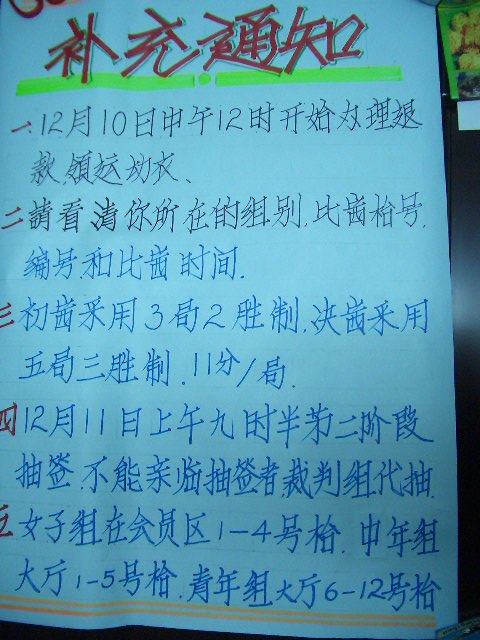 补充通知
一.12月10日中午12时开始办理退
款.领运动衣、
二請看清你所在的组别.比啬枱号.
编号.和比啬时间.
三初啬采用3局2胜制.决啬采用
五局三胜制.11分/局.
四12月11日上午九时半第二阶段
抽签.不能亲临抽签者裁判组代抽.
五女子组在会员区1-4号枱.中年组
大厅1-5号枱.青年组大厅6-12号枱